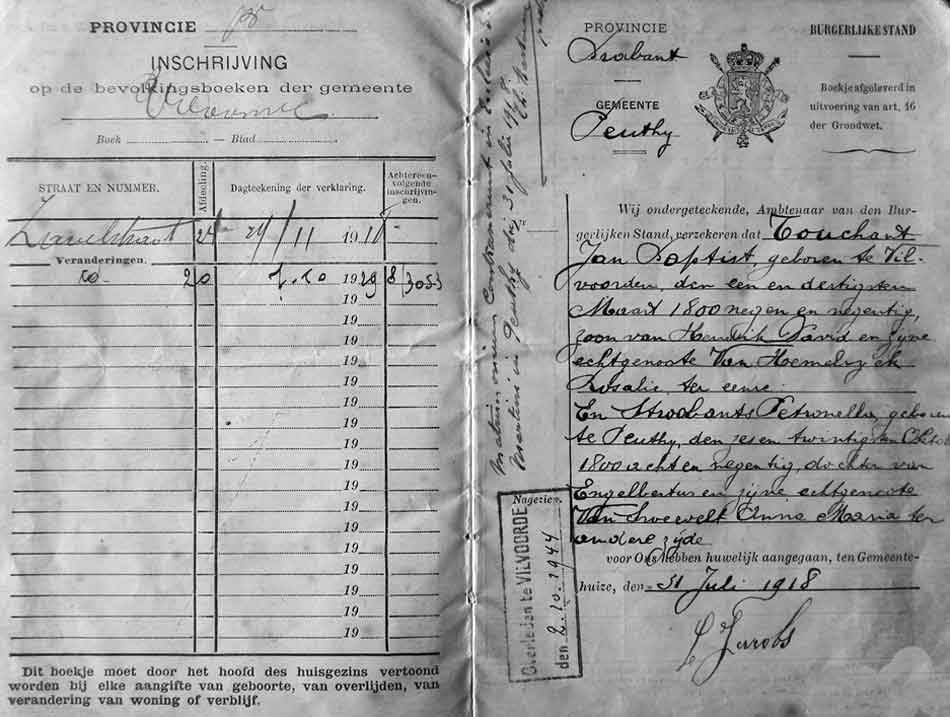 PROVINCIE Br
INSCHRIJVING
op de bevolkingsboeken der gemeente
Vilvoorde
Boek — Blad
STRAAT EN NUMMER.
Afdeeling.
Dagteekening der verklaring.
Achtereen-
volgende
inschrijvin-
gen.
24 11 1918
Veranderingen.
20 7.10 1929 8/3053
19
19
19
19
19
19
19
19
19
19
19
19
19
19
19
19
19
Dit boekje moet door het hoofd des huisgezins vertoond
worden bij elke aangifte van geboorte, van overlijden, van
verandering van woning of verblijf.
Matrimonium contraxerunt in ecclesia
Martini in Peuthy die 31 Julii 1918
PROVINCIE
Brabant
GEMEENTE
Peuthy
BURGERLIJKE STAND
Boekje afgeleverd in
uitvoering van art. 16
der Grondwet.
Wij ondergeteekende, Ambtenaar van den Bur-
gerlijken Stand, verzekeren dat Touchant
Jan Baptist, geboren te Vil-
voorden, den een en dertigsten
Maart 1800 negen en negentig,
zoon van Hendrik David en zijne
echtgenoote Van Hemelryck
Rosalie ter eenre.
En Stroobants Petronella, geboren
te Peuthy, den zes en twintigsten Octob
1800 acht en negentig, dochter van
Engelbertus en zijne echtgenoote
Van Anna Maria ter
andere zijde
voor Ons hebben huwelijk aangegaan, ten Gemeente-
huize, den 31 Juli 1918
Jacobs
Nagezien.
Overleden te VILVOORDE
den 2.10.1944